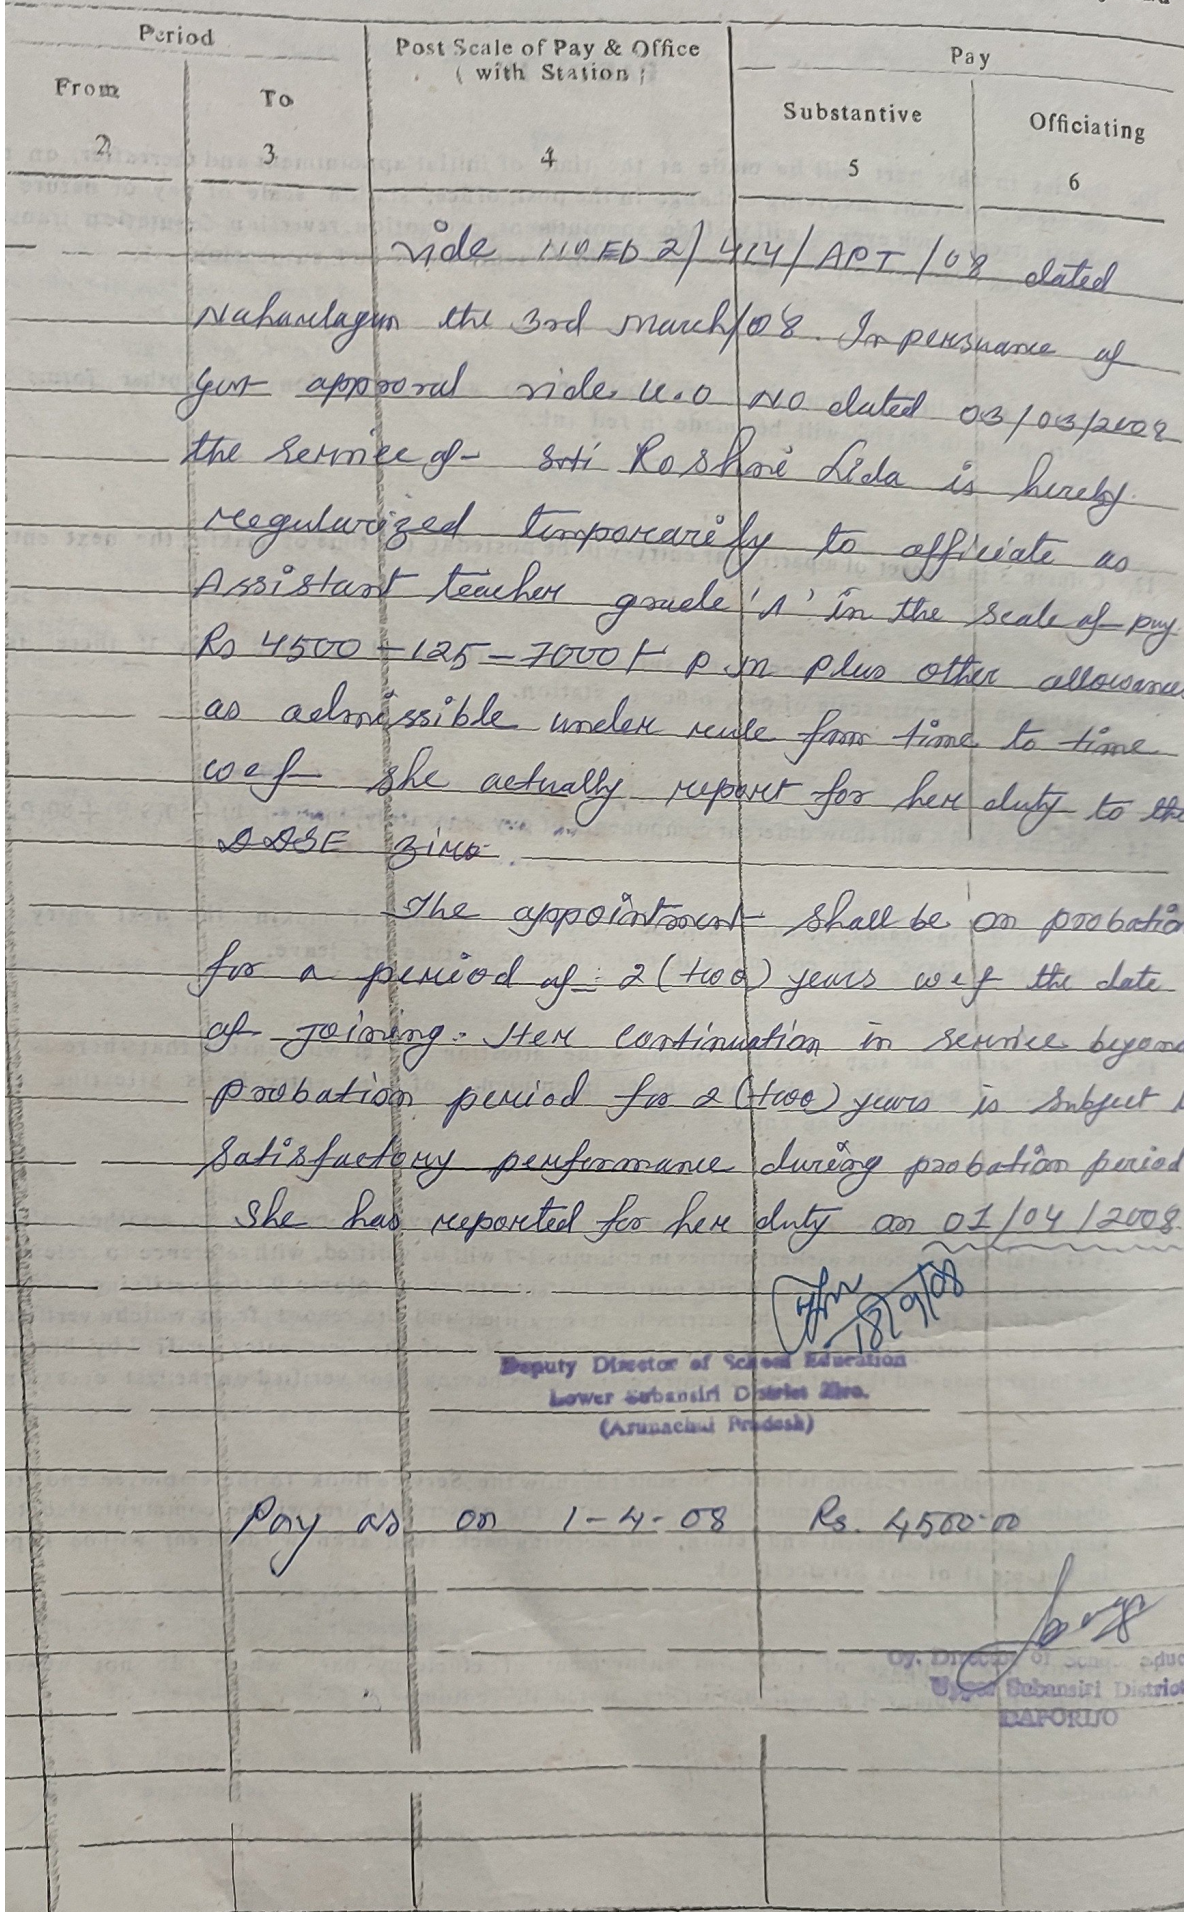 Period
Post Scale of Pay & Office
( with Station )
Pay
From
To
Substantive
Officiating
2
3
4
5
6
vide NO ED 2/ 414/ APT /08 dated
Naharlagun the 3rd March/08. In persuance of
Govt approval vide. U.O NO dated 03/03/2008
the service of Smti Roshni Lida is hereby
regularized temporarily to officiate as
Assistant teacher grade 'A' in the scale of pay
Rs 4500 – 125 – 7000/- p.m plus other allowance
as admissible under rule from time to time
w e f she actually report for her duty to the
DDSE Ziro
The appointment shall be on probation
for a period of 2 (two) years w e f the date
of joining. Her continuation in service beyond
probation period for 2 (two) years is subject
satisfactory performance during probation period
she has reported for her duty on 01/04/2008.
18/9/08
Deputy Director of School Education
Lower Subansiri District Ziro.
(Arunachal Pradesh)
Pay as on 1-4-08 Rs. 4500.00
Dy. Director of School Educ
Upper Subansiri District
DAPORIJO